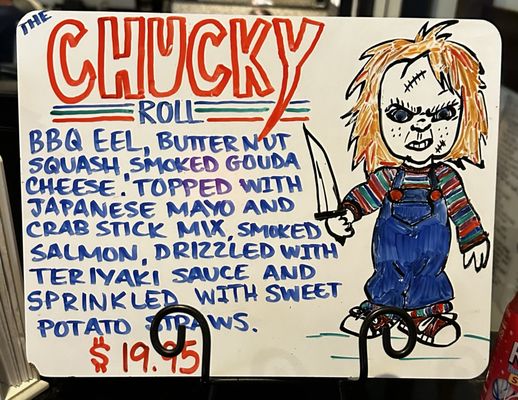 THE
CHUCKY
ROLL
BBQ EEL, BUTTERNUT
SQUASH, SMOKED GOUDA
CHEESE. TOPPED WITH
JAPANESE MAYO AND
CRAB STICK MIX, SMOKED
SALMON, DRIZZLED WITH
TERIYAKI SAUCE AND
SPRINKLED WITH SWEET
POTATO STRAWS.
$19.95